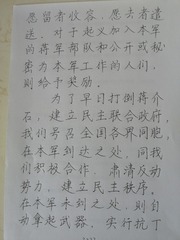 愿留者收容，愿去者遣
送。对于起义加入本军
的蒋军部队和公开或秘
密为本军工作的人们，
则给予奖励。
为了早日打倒蒋介
石，建立民主联合政府，
我们号召全国各界同胞，
在本军到达之处，同我
们积极合作，肃清反动
势力，建立民主秩序。
在本军未到之处，则自
动拿起武器，实行抗丁